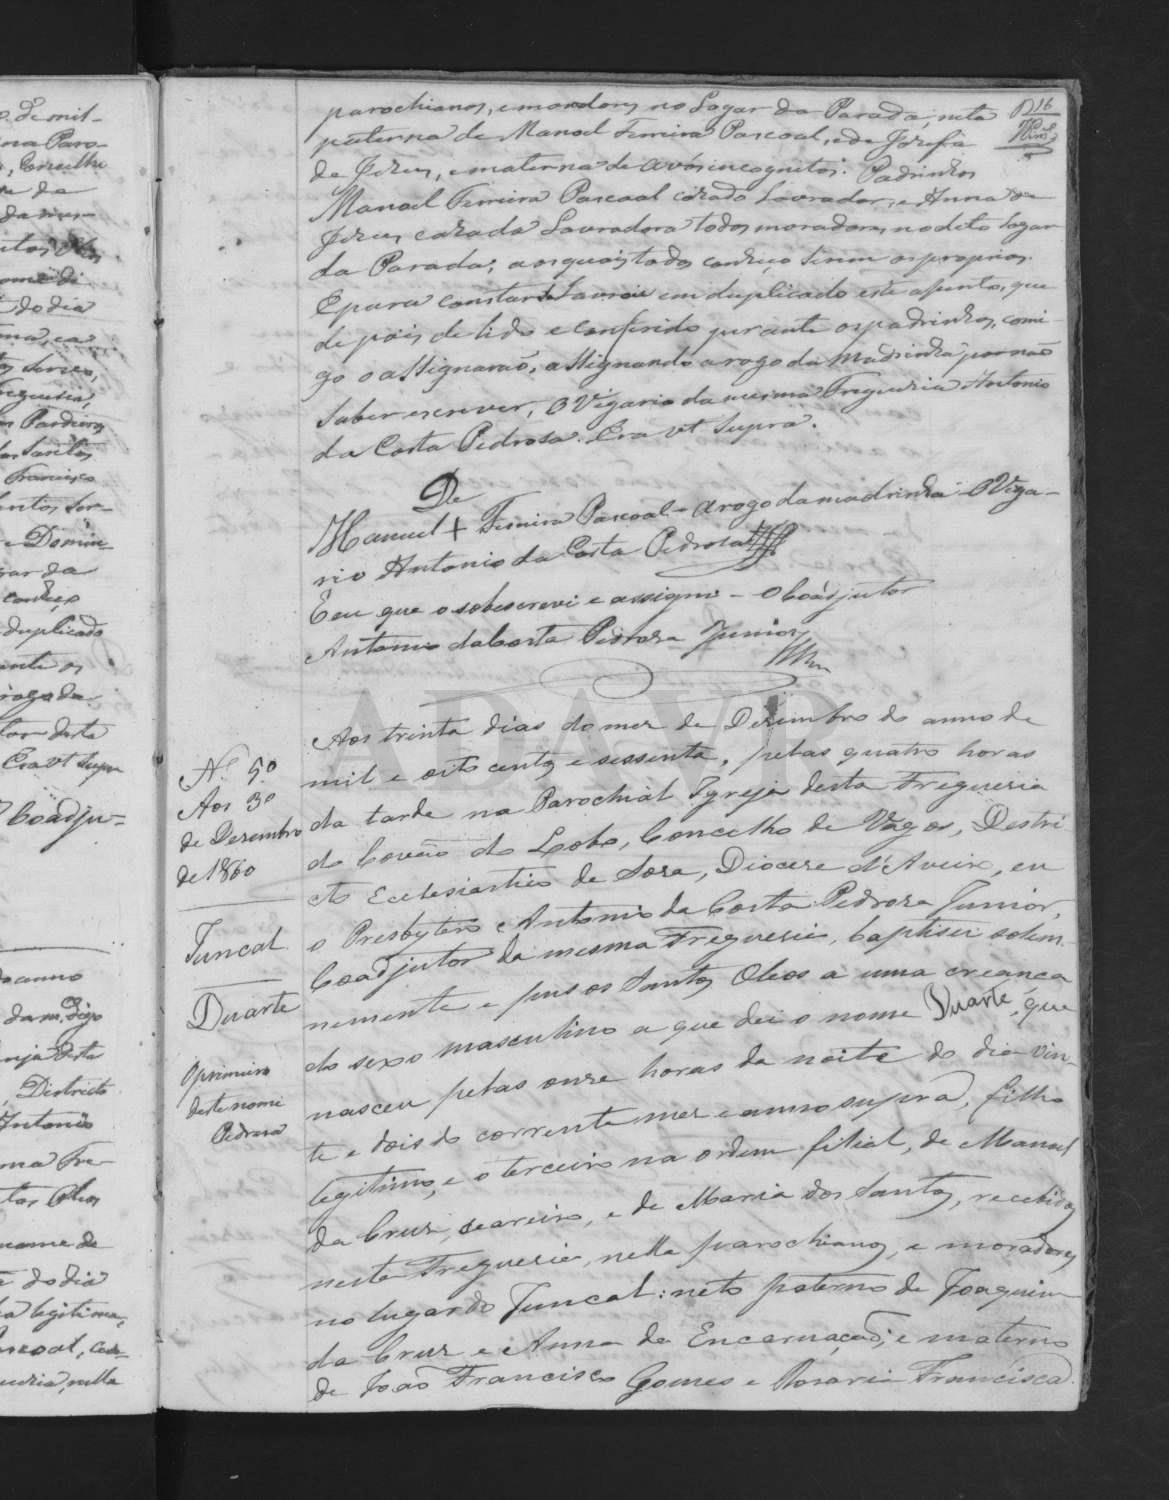 parochianos, e moradores no Logar da Parada, neta
paterna de Manoel Ferreira Pascoal, e de Josefa
de Jezus, e materna de avós incognitos. Padrinhos
Manoel Ferreira Pascoal cazado Lavrador, e Anna de
Jezus cazada Lavradora todos moradores no dito Logar
da Parada, aos quais todos conheço serem os proprios.
E para constar se Lavrou em duplicado este assento, que
depois de lido e conferido perante os padrinhos, comi-
go o assignarão, assignando a rogo da Madrinha por não
saber escrever, O Vigario da mesma Freguezia Antonio
da Costa Pedrosa. Era ut supra.
De
Manuel + Ferreira Pascoal - arogo da madrinha - O Viga-
rio Antonio da Costa Pedrosa
E eu que o sobescrevi e assigno - O Coadjutor
Antonio da Costa Pedrosa Junior
ADAVR
Nº 50
Aos 30
de Dezembro
de 1860
Juncal
Duarte
O primeiro
deste nome
Pedrosa
Aos trinta dias do mez de Dezembro do anno de
mil e oito centos e sessenta, pelas quatro horas
da tarde na Parochial Igreja desta Freguesia
do Covão do Lobo, Concelho de Vagos, Destri-
cto Ecclesiastico de Soza, Diocese d'Aveiro, eu
o Presbytero Antonio da Costa Pedrosa Junior,
Coadjutor da mesma Freguesia, baptisei solem-
nemente e puz os Santos Oleos a uma creança
do sexo masculino a que dei o nome Duarte, que
nasceu pelas onze horas da noite do dia vin-
te e dois do corrente mez e anno supra, filho
legitimo, e o terceiro na ordem filial, de Manuel
da Cruz, seareiro, e de Maria dos Santos, recebidos
nesta Freguesia, nella parochianos, e moradores
no lugar do Juncal: neto paterno de Joaquim
da Cruz e Anna da Encarnação, e materno
de João Francisco Gomes e Rosaria Francisca.